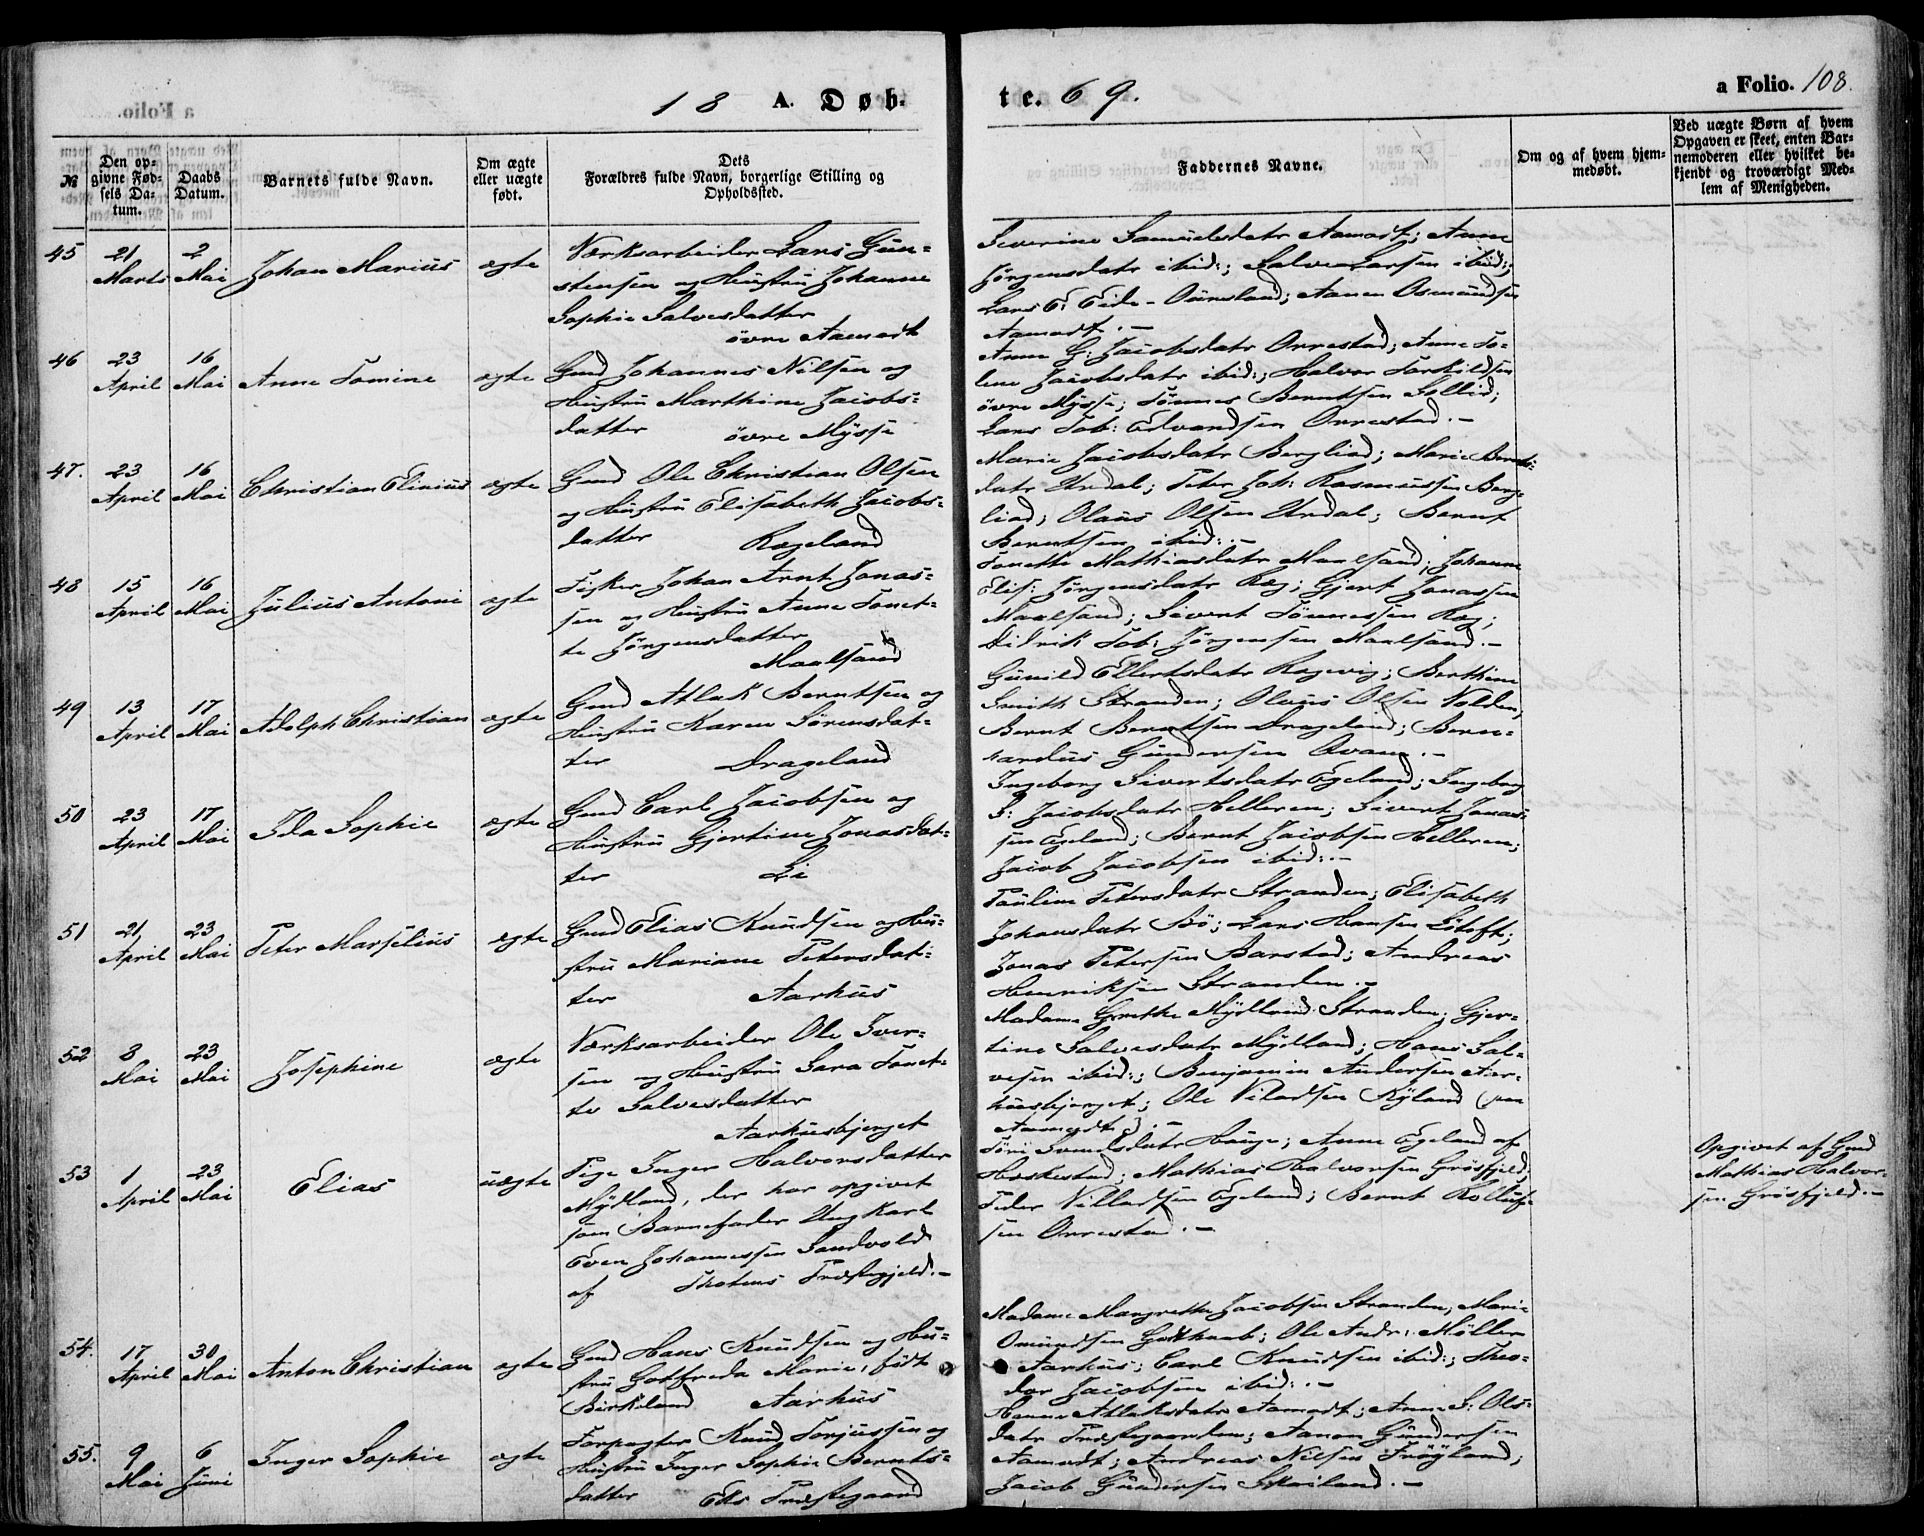 18 A. Døb-
te. 69. a Folio. 108.
№ Den op-
givne Fød-
sels Da-
tum.
Daabs
Datum.
Barnets fulde Navn.
Om ægte
eller uægte
født.
Dets
Forældres fulde Navn, borgerlige Stilling og
Opholdssted.
Faddernes Navne.
Om og af hvem hjem-
medøbt.
Ved uægte Børn af hvem
Opgaven er skeet, enten Bar-
nemoderen eller hvilket be-
kjendt og troværdigt Med-
lem af Menigheden.
45 21 Marts 2 Mai Johan Marius ægte
Værksarbeider Lars Gun-
stensen og Hustru Johanne
Sophie Salvesdatter
øvre Aamodt
Severine Samuelsdatr Aamodt; Anne
Jörgensdatr ibid:; Salve Larsen ibid:;
Lars E: Eide - Ounsland; Aanen Osmundsen
Aamodt.-
46 23 April 16 Mai Anne Tomine ægte
Gmd Johannes Nilsen og
Hustru Marthine Jacobs-
datter övre Mysse
Anne G: Jacobsdatr Orrestad; Anne To-
lene Jacobsdatr ibid:; Halvor Torkildsen
övre Mysse; Tönnes Berntsen Sollid;
Lars Tob: Edvardsen Orrestad.-
47. 23 April 16 Mai Christian Elinius ægte
Gmd Ole Christian Olsen
og Hustru Elisabeth Jacobs-
datter Rægeland
Marie Jacobsdatr Bergliad; Marie Bernts-
datr Urdal; Peter Joh: Rasmussen Berg-
liad; Olaus Olsen Urdal; Bernt
Berntsen ibid:.-
48 15 April 16 Mai Julius Antoni ægte
Fisker Johan Arnt Jonas-
sen og Hustru Anne Tonet-
te Jörgensdatter
Maalsund
Tonette Mathiasdatr Maalsund; Johanne
Elis: Jörgensdatr Ræg; Gjert Jonassen
Maalsund; Sivert Tönnessen Ræg;
Didrik Tob: Jörgensen Maalsund.-
49 13 April 17 Mai Adolph Christian ægte
Gmd Atlak Berntsen og
Hustru Karen Sörensdat-
ter Drageland
Gunild Ellertsdatr Rægevig; Berthine
Smith Stranden; Olaus Olsen Volden,
Bernt Berntsen Drageland; Bern-
hardus Gundersen Qvam.-
50 23 April 17 Mai Ida Sophie ægte
Gmd Carl Jacobsen og
Hustru Gjertine Jonasdat-
ter Li
Ingeborg Sivertsdatr Egeland; Ingeborg
S: Jacobsdatr Helleren; Sivert Jonas-
sen Egeland; Bernt Jacobsen Helleren;
Jacob Jacobsen ibid:.-
51 21 April 23 Mai Peter Marselius ægte
Gmd Elias Knudsen og Hu-
stru Mariane Petersdat-
ter Aarhus
Pauline Petersdatr Stranden; Elisabeth
Johansdatr Bö; Lars Hansen Lötoft;
Jonas Petersen Barstad; Andreas
Henriksen Stranden.-
52 8 Mai 23 Mai Josephine ægte
Værksarbeider Ole Iver-
sen og Hustru Sara Tonet-
te Salvesdatter
Aarhusbjerget
Madame Grethe Mydland Stranden; Gjer-
tine Salvesdatr Mydland; Hans Sal-
vesen ibid:; Benjamin Andersen Aar-
husbjerget; Ole Viladsen Ryland (paa
Aamodt).-
53 1 April 23 Mai Elias uægte
Pige Inger Halvorsdatter
Mydland, der har opgivet
som Barnefader Ungkarl
Even Johannessen Sandvold
af Thotens Præstegjeld.-
Töri Svendsdatr Houge; Anne Egeland af
Heskestad; Mathias Halvorsen Grösfjeld;
Peder Villadsen Egeland; Bernt Rolluf-
sen Orrestad.-
Opgivet af Gmd
Mathias Halvor-
sen Grösfjeld.-
54. 17 April 30 Mai Anton Christian ægte
Gmd Hans Knudsen og Hu-
stru Gotfreda Marie, født
Birkeland Aarhus
Madame Margrethe Jacobsen Stranden, Marie
Omundsen Godthaab; Ole Andr: Möller
Aarhus; Carl Knudsen ibid:; Theo-
dor Jacobsen ibid:.-
55. 9 Mai 6 Juni Inger Sophie ægte
Forpagter Knud Torjussen og
Hustru Inger Sophie Bernts-
datter Ells Præstegaard
Hanne Atlaksdatr Aamodt; Anne S: Ols-
datr Præstegaarden; Aanon Gundersen
Aamodt; Andreas Nilsen Fröyland;
Jacob Gundersen Skailand.-